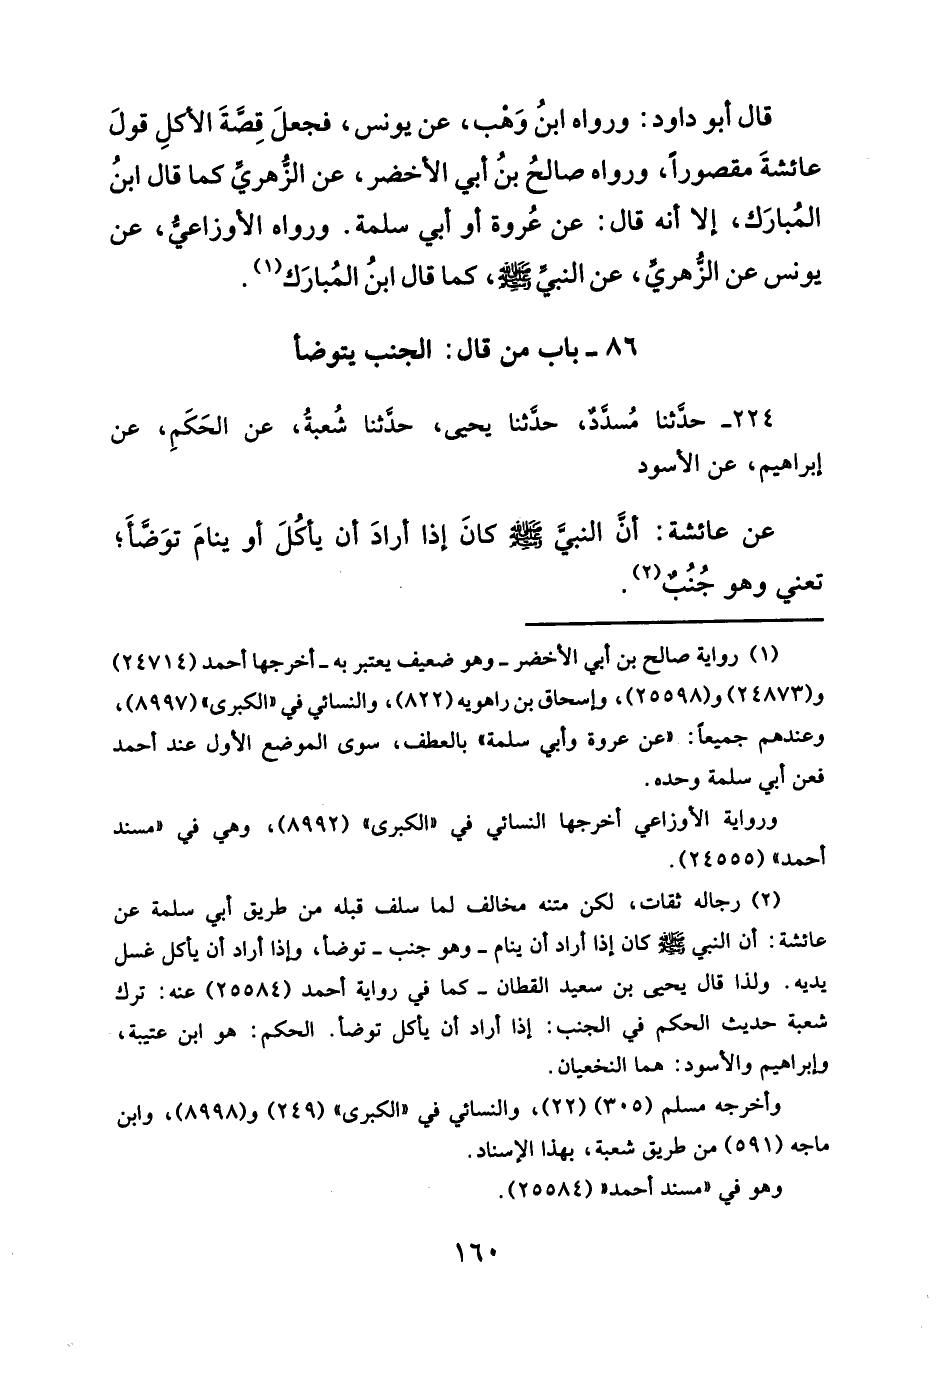 قال أبو داود: ورواه ابنُ وَهْب، عن يونس، فجعلَ قِصَّةَ الأكلِ قولَ
عائشةَ مقصوراً، ورواه صالحُ بنُ أبي الأخضر، عن الزُّهريِّ كما قال ابنُ
المُبارَك، إلا أنه قال: عن عُروة أو أبي سلمة. ورواه الأوزاعيُّ، عن
يونس عن الزُّهريِّ، عن النبيِّ ﷺ، كما قال ابنُ المُبارَك(١).
٨٦ ـ باب من قال: الجنب يتوضأ
٢٢٤ـ حدَّثنا مُسدَّدٌ، حدَّثنا يحيى، حدَّثنا شُعبةُ، عن الحَكَمِ، عن
إبراهيم، عن الأسود
عن عائشة: أنَّ النبيَّ ﷺ كانَ إذا أرادَ أن يأكُلَ أو ينامَ توَضَّأَ؛
تعني وهو جُنُبٌ(٢).
(١) رواية صالح بن أبي الأخضر ـ وهو ضعيف يعتبر به ـ أخرجها أحمد (٢٤٧١٤)
و(٢٤٨٧٣) و(٢٥٥٩٨)، وإسحاق بن راهويه (٨٢٢)، والنسائي في «الكبرى» (٨٩٩٧)،
وعندهم جميعاً: «عن عروة وأبي سلمة» بالعطف، سوى الموضع الأول عند أحمد
فعن أبي سلمة وحده.
ورواية الأوزاعي أخرجها النسائي في «الكبرى» (٨٩٩٢)، وهي في «مسند
أحمد» (٢٤٥٥٥).
(٢) رجاله ثقات، لكن متنه مخالف لما سلف قبله من طريق أبي سلمة عن
عائشة: أن النبي ﷺ كان إذا أراد أن ينام ـ وهو جنب ـ توضأ، وإذا أراد أن يأكل غسل
يديه. ولذا قال يحيى بن سعيد القطان ـ كما في رواية أحمد (٢٥٥٨٤) عنه: ترك
شعبة حديث الحكم في الجنب: إذا أراد أن يأكل توضأ. الحكم: هو ابن عتيبة،
وإبراهيم والأسود: هما النخعيان.
وأخرجه مسلم (٣٠٥) (٢٢)، والنسائي في «الكبرى» (٢٤٩) و(٨٩٩٨)، وابن
ماجه (٥٩١) من طريق شعبة، بهذا الإسناد.
وهو في «مسند أحمد» (٢٥٥٨٤).
١٦٠